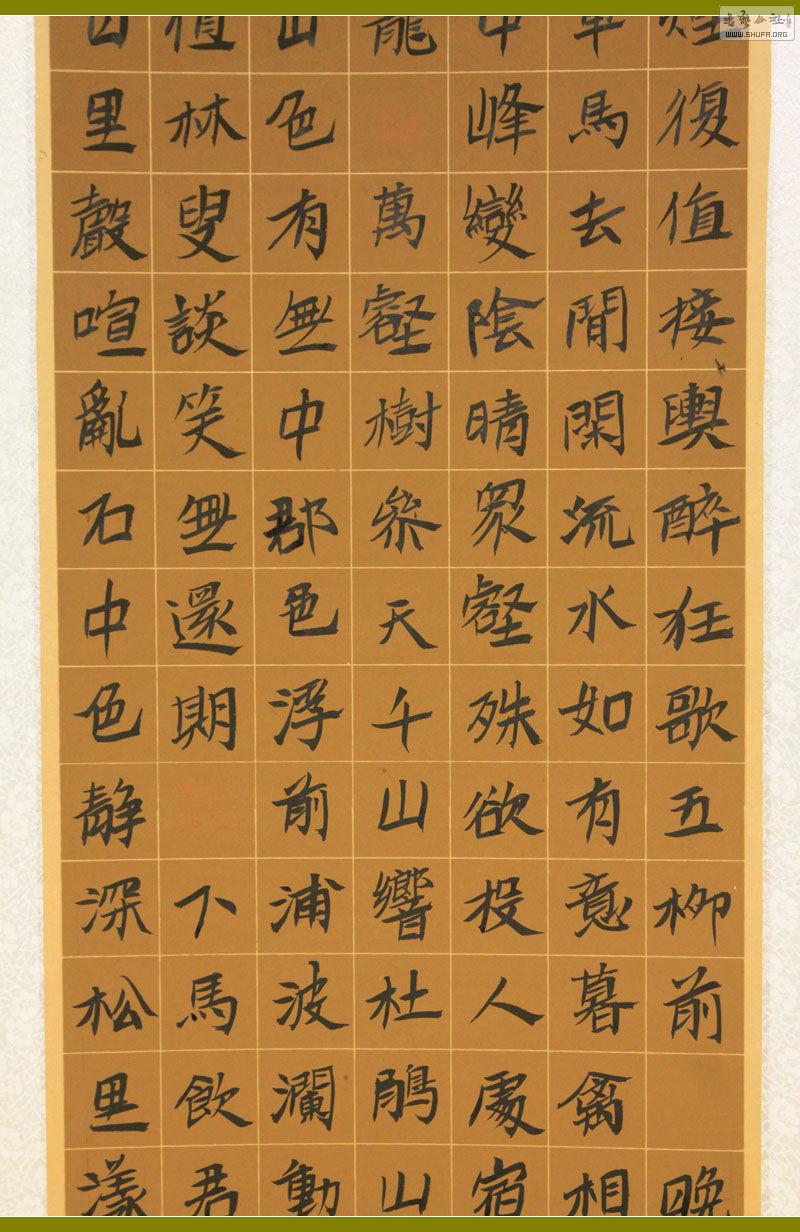 煙復值接輿醉狂歌五柳前 晚
車馬去閒閑流水如有意暮禽相
中峰變陰晴眾壑殊欲投人處宿
龍 萬壑樹參天千山響杜鵑山
山色有無中郡邑浮前浦波瀾動
值林叟談笑無還期 下馬飲君
百里聲喧亂石中色靜深松里漾
書藝公社
WWW.SHUFA.ORG